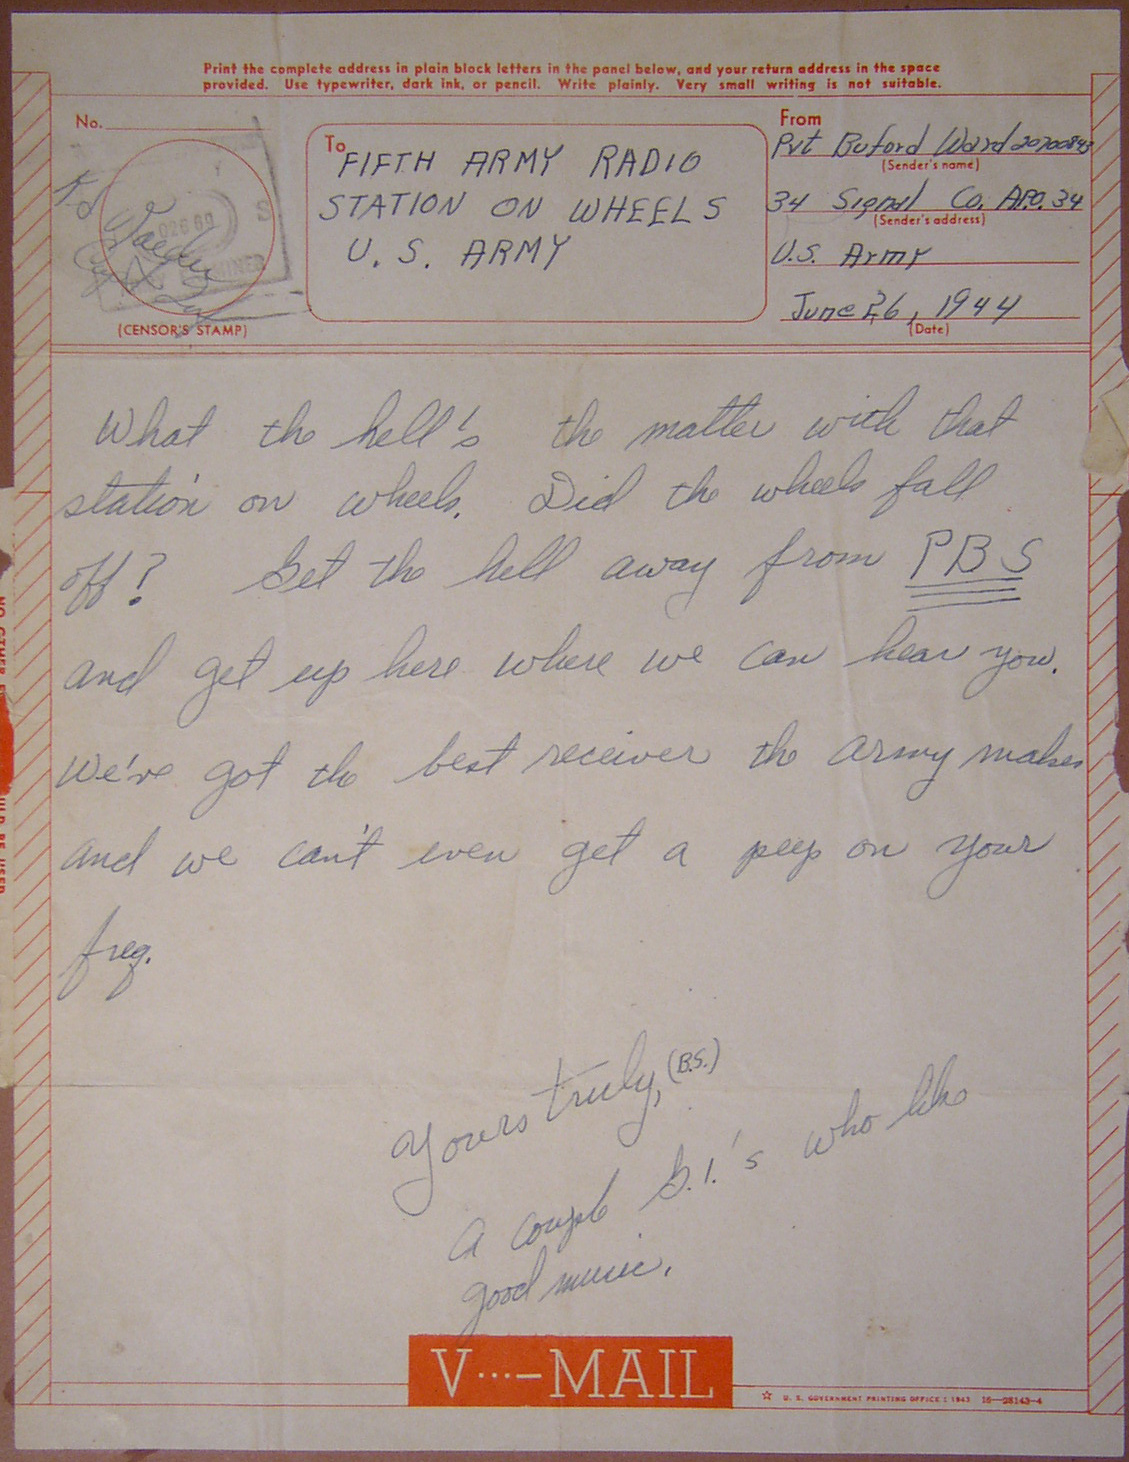 Print the complete address in plain block letters in the panel below, and your return address in the space
provided. Use typewriter, dark ink, or pencil. Write plainly. Very small writing is not suitable.
No.
(CENSOR'S STAMP)
To
FIFTH ARMY RADIO
STATION ON WHEELS
U. S. ARMY
From
Pvt Buford Ward 20700843
(Sender's name)
34 Signal Co. APO. 34
(Sender's address)
U.S. Army
June 26, 1944
(Date)
What the hell's the matter with that
station on wheels. Did the wheels fall
off? Get the hell away from PBS
and get up here where we can hear you.
We've got the best receiver the army makes
and we can't even get a peep on your
freq.
Yours truly, (B.S.)
A couple G.I.'s who like
good music.
V···–MAIL
☆ U. S. GOVERNMENT PRINTING OFFICE : 1943 16—28143-4